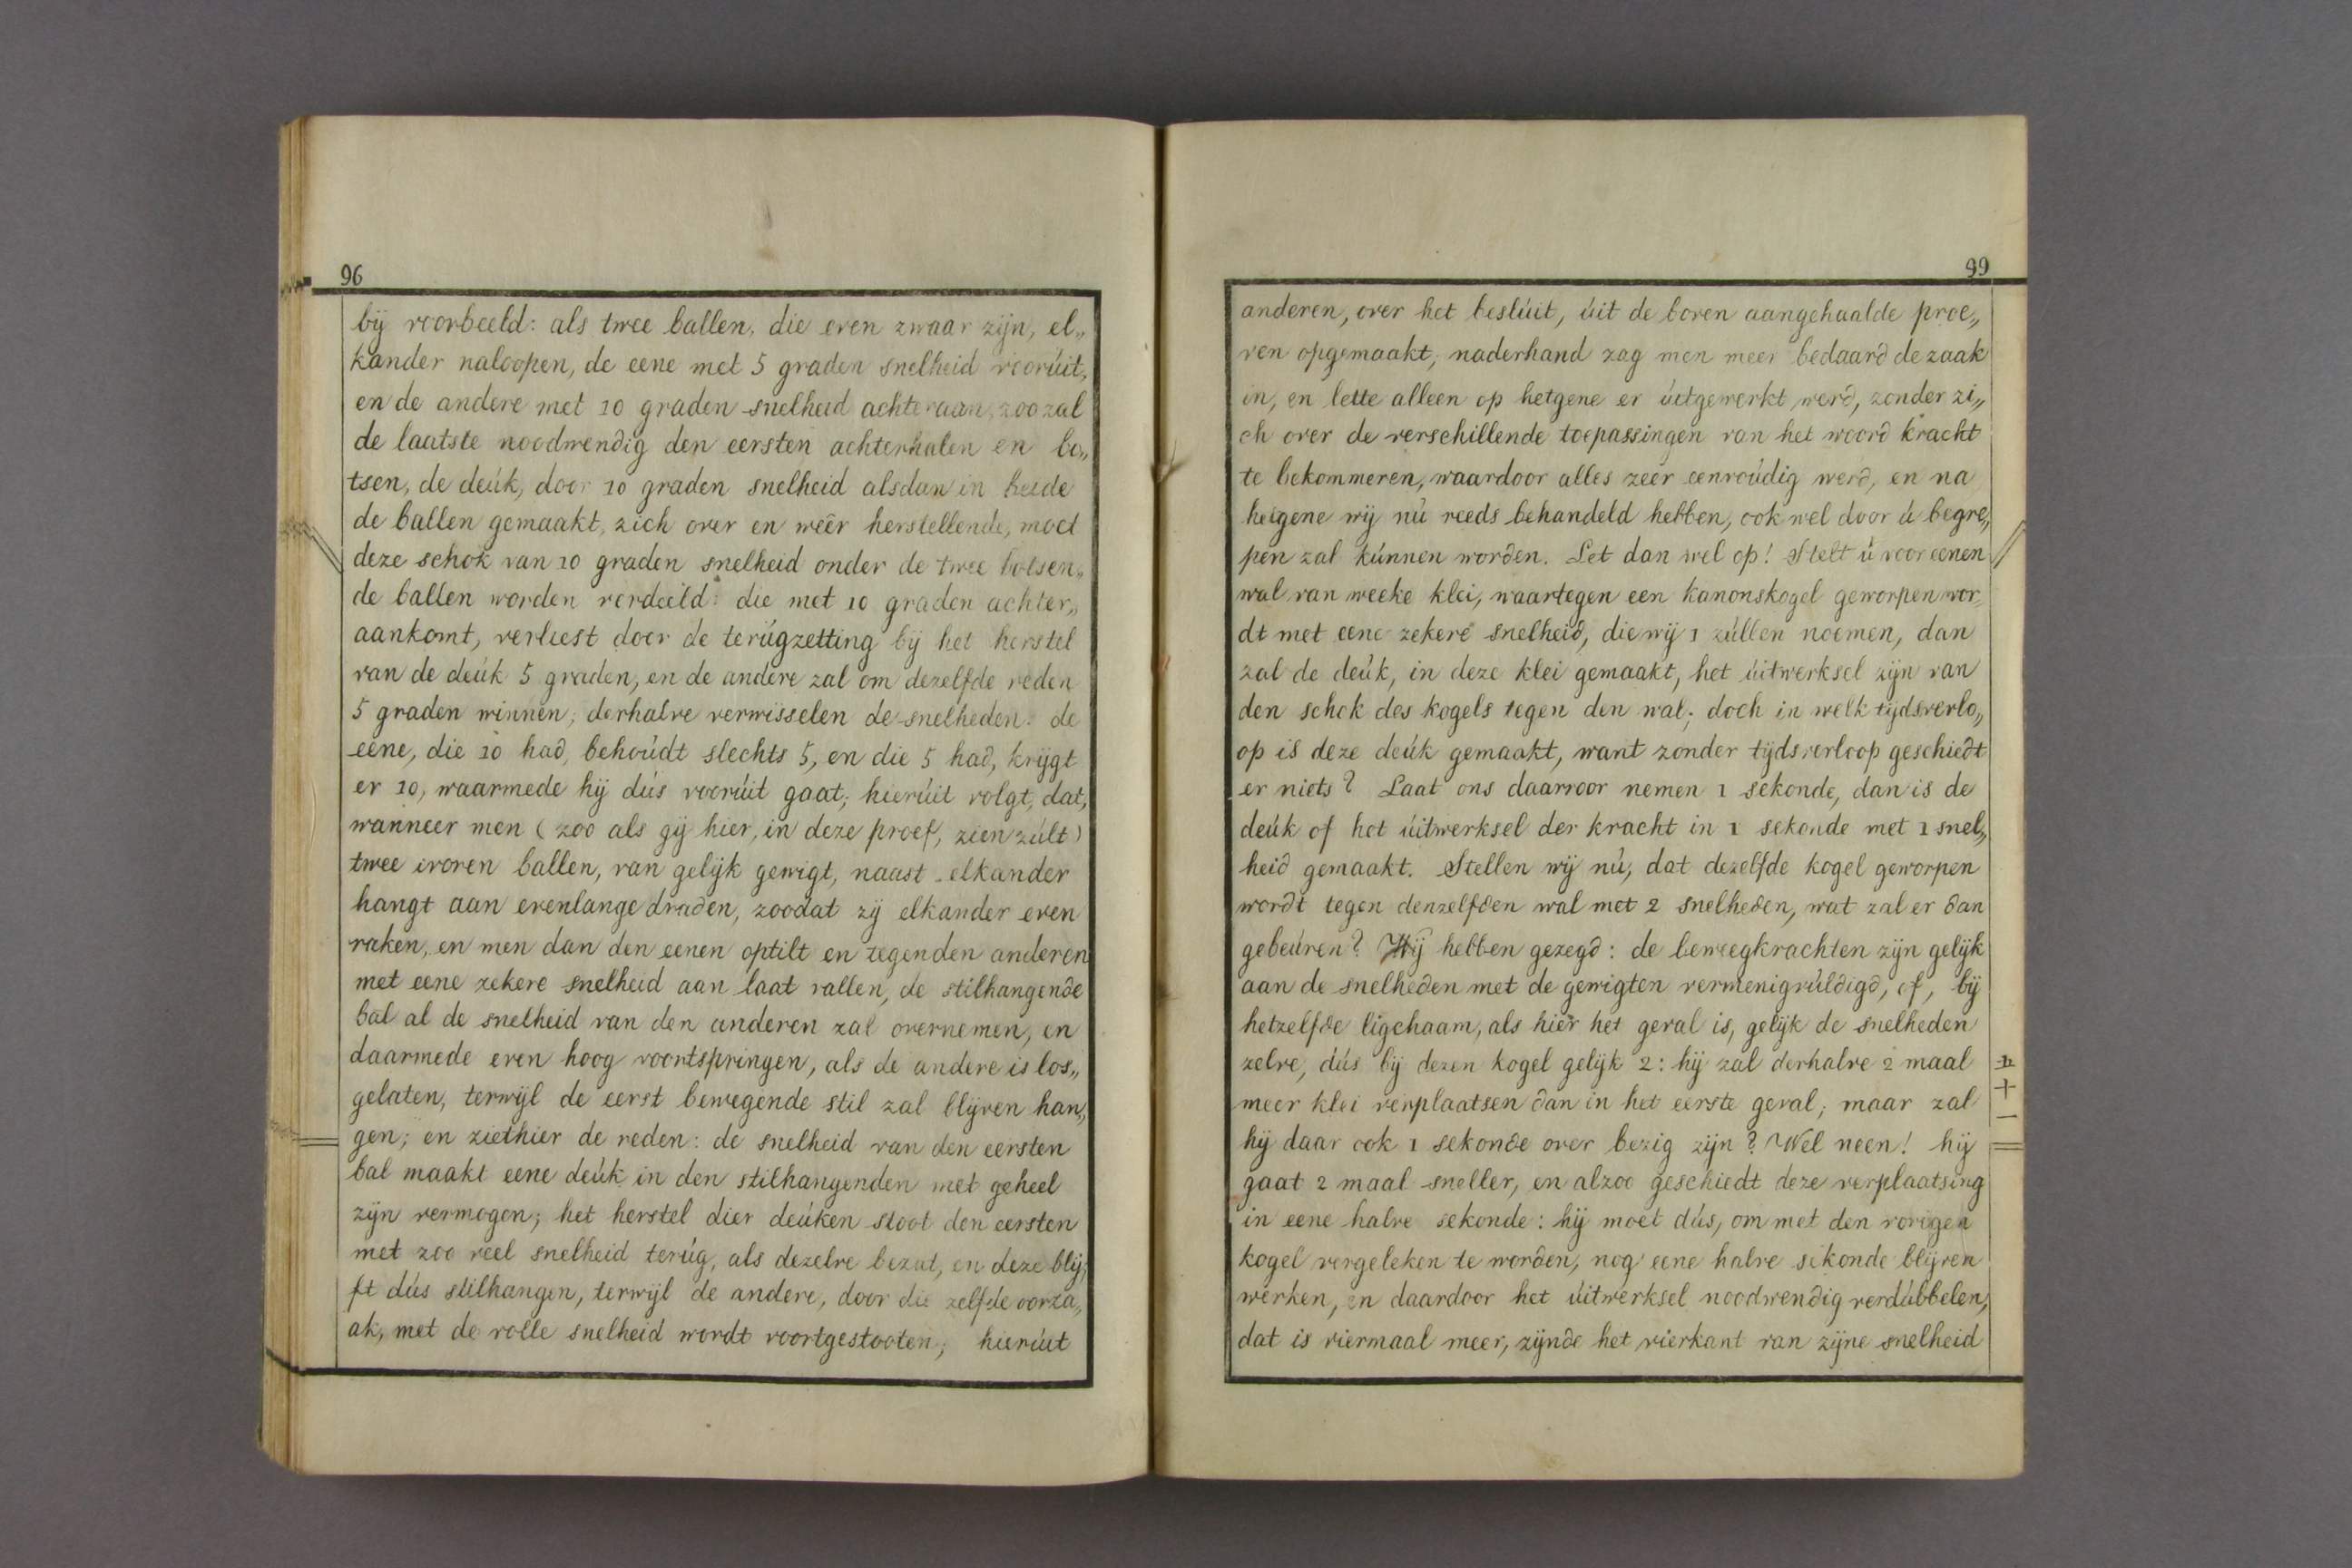 96
bij voorbeeld: als twee ballen, die even zwaar zijn, el„
kander naloopen, de eene met 5 graden snelheid voorúit,
en de andere met 10 graden snelheid achteraan, zoo zal
de laatste noodwendig den eersten achterhalen en bo„
tsen, de deúk, door 10 graden snelheid alsdan in beide
de ballen gemaakt, zich over en weêr herstellende, moet
deze schok van 10 graden snelheid onder de twee botsen„
de ballen worden verdeeld: die met 10 graden achter„
aankomt, verliest door de terúgzetting bij het herstel
van de deúk 5 graden, en de andere zal om dezelfde reden
5 graden winnen; derhalve verwisselen de snelheden: de
eene, die 10 had, behoúdt slechts 5, en die 5 had, krijgt
er 10, waarmede hij dús voorúit gaat; hierúit volgt, dat,
wanneer men (zoo als gij hier, in deze proef, zien zúlt)
twee ivoren ballen, van gelijk gewigt, naast elkander
hangt aan evenlange draden, zoodat zij elkander even
raken, en men dan den eenen optilt en tegen den anderen
met eene zekere snelheid aan laat vallen, de stilhangende
bal al de snelheid van den anderen zal overnemen, en
daarmede even hoog voortspringen, als de andere is los„
gelaten, terwijl de eerst bewegende stil zal blijven han„
gen; en ziethier de reden: de snelheid van den eersten
bal maakt eene deúk in den stilhangenden met geheel
zijn vermogen; het herstel dier deúken stoot den eersten
met zoo veel snelheid terúg, als dezelve bezat, en deze blij„
ft dús stilhangen, terwijl de andere, door die zelfde oorza„
ak, met de volle snelheid wordt voortgestooten; hierúit
99
anderen, over het beslúit, úit de boven aangehaalde proe„
ven opgemaakt; naderhand zag men meer bedaard de zaak
in, en lette alleen op hetgene er úitgewerkt werd, zonder zi„
ch over de verschillende toepassingen van het woord kracht
te bekommeren, waardoor alles zeer eenvoúdig werd, en na
hetgene wij nú reeds behandeld hebben, ook wel door ú begre„
pen zal kúnnen worden. Let dan wel op! Stelt ú voor eenen
wal van weeke klei, waartegen een kanonskogel geworpen wor„
dt met eene zekere snelheid, die wij 1 zúllen noemen, dan
zal de deúk, in deze klei gemaakt, het úitwerksel zijn van
den schok des kogels tegen den wal; doch in welk tijdsverlo„
op is deze deúk gemaakt, want zonder tijdsverloop geschiedt
er niets? Laat ons daarvoor nemen 1 sekonde, dan is de
deúk of het úitwerksel der kracht in 1 sekonde met 1 snel„
heid gemaakt. Stellen wij nú, dat dezelfde kogel geworpen
wordt tegen denzelfden wal met 2 snelheden, wat zal er dan
gebeúren? Wij hebben gezegd: de beweegkrachten zijn gelijk
aan de snelheden met de gewigten vermenigvúldigd, of, bij
hetzelfde ligchaam, als hier het geval is, gelijk de snelheden
zelve, dús bij dezen kogel gelijk 2: hij zal derhalve 2 maal
meer klei verplaatsen dan in het eerste geval; maar zal
hij daar ook 1 sekonde over bezig zijn? Wel neen! hij
gaat 2 maal sneller, en alzoo geschiedt deze verplaatsing
in eene halve sekonde: hij moet dús, om met den vorigen
kogel vergeleken te worden, nog eene halve sekonde blijven
werken, en daardoor het úitwerksel noodwendig verdúbbelen,
dat is viermaal meer, zijnde het vierkant van zijne snelheid
五十一